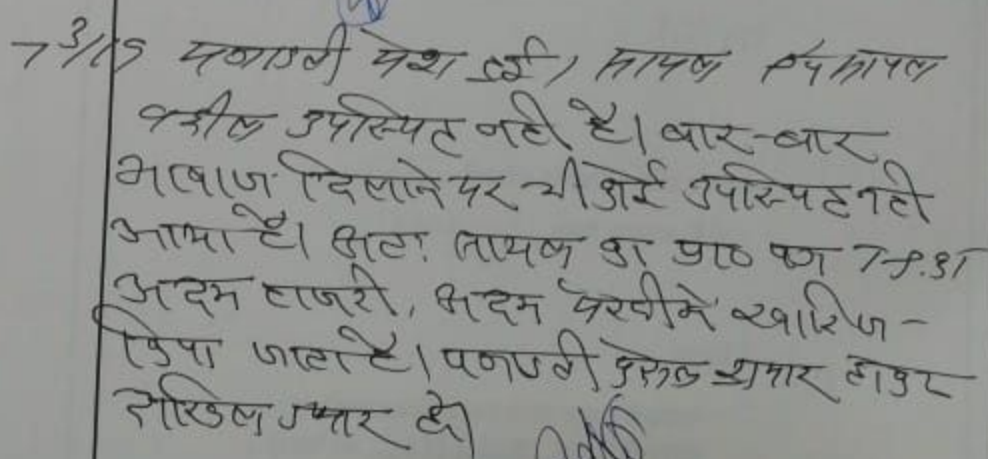 7/3/15 पत्रावली पेश हुई। सायल
वकील उपस्थित नहीं है। बार-बार
आवाज दिलाने पर भी कोई उपस्थित नहीं
आया है। अतः सायल का प्रा० पत्र
अदम हाजरी, अदम पैरवी में खारिज -
किया जाता है। पत्रावली फैसल शुमार होकर
दाखिल दफ्तर हो।